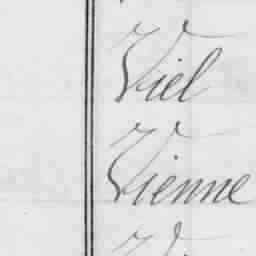 Viel
Vienne